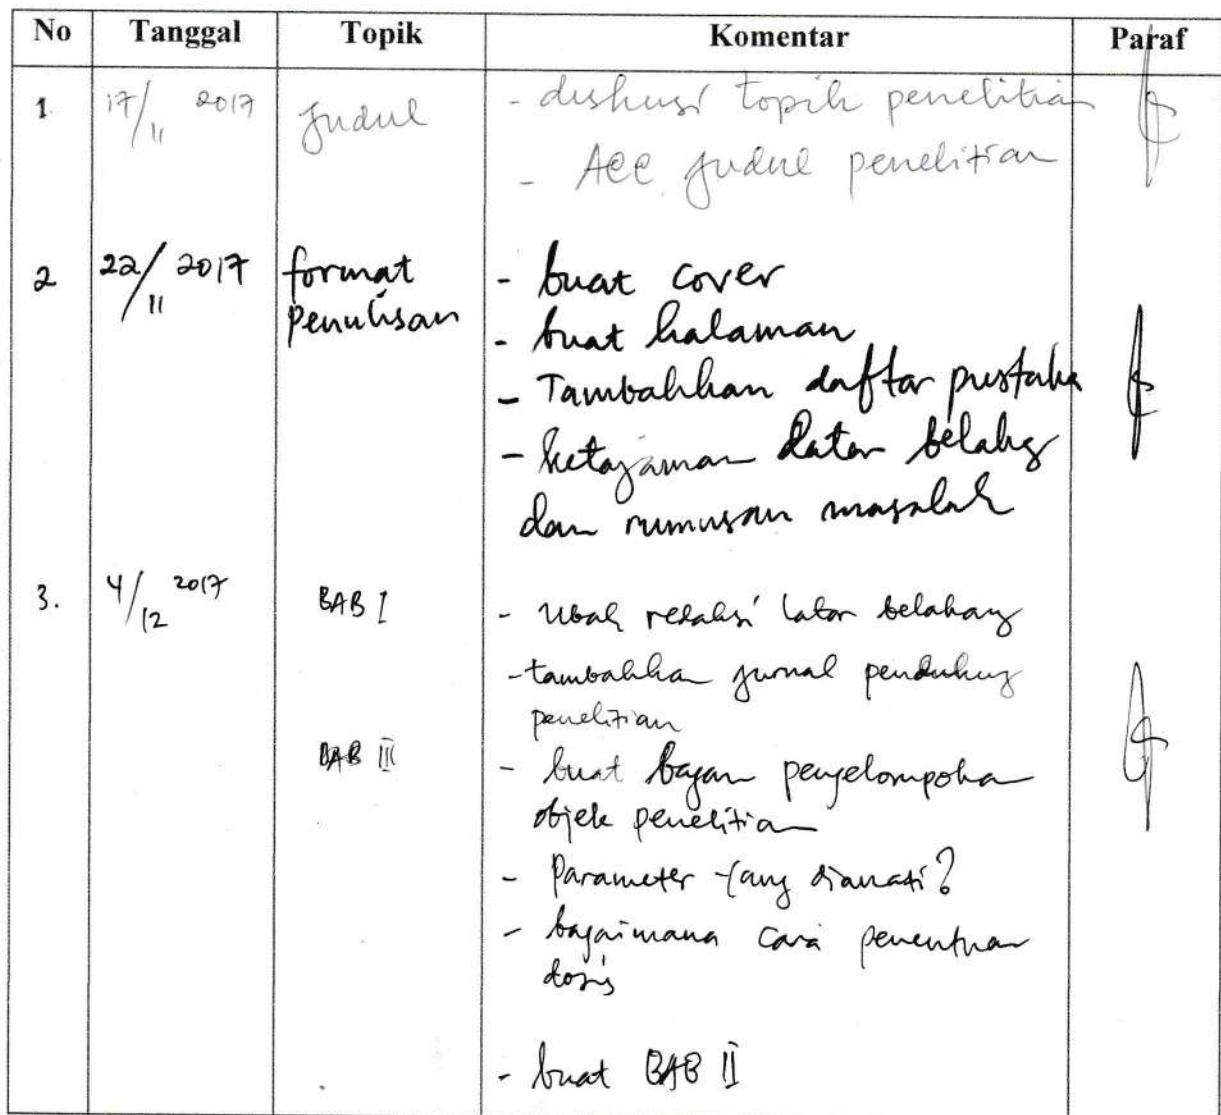 No Tanggal Topik Komentar Paraf
1. 17/11 2017 Judul - diskusi topik penelitian
- Acc Judul penelitian
2 22/11 2017 format penulisan - buat cover
- buat halaman
- Tambahkan daftar pustaka
- ketajaman latar belakg
dan rumusan masalah
3. 4/12 2017 BAB I - Ubah redaksi latar belakang
- tambahkan jurnal pendukung
penelitian
BAB III - buat bagan pengelompokan
objek penelitian
- Parameter yang diamati?
- bagaimana cara penentuan
dosis
- buat BAB II